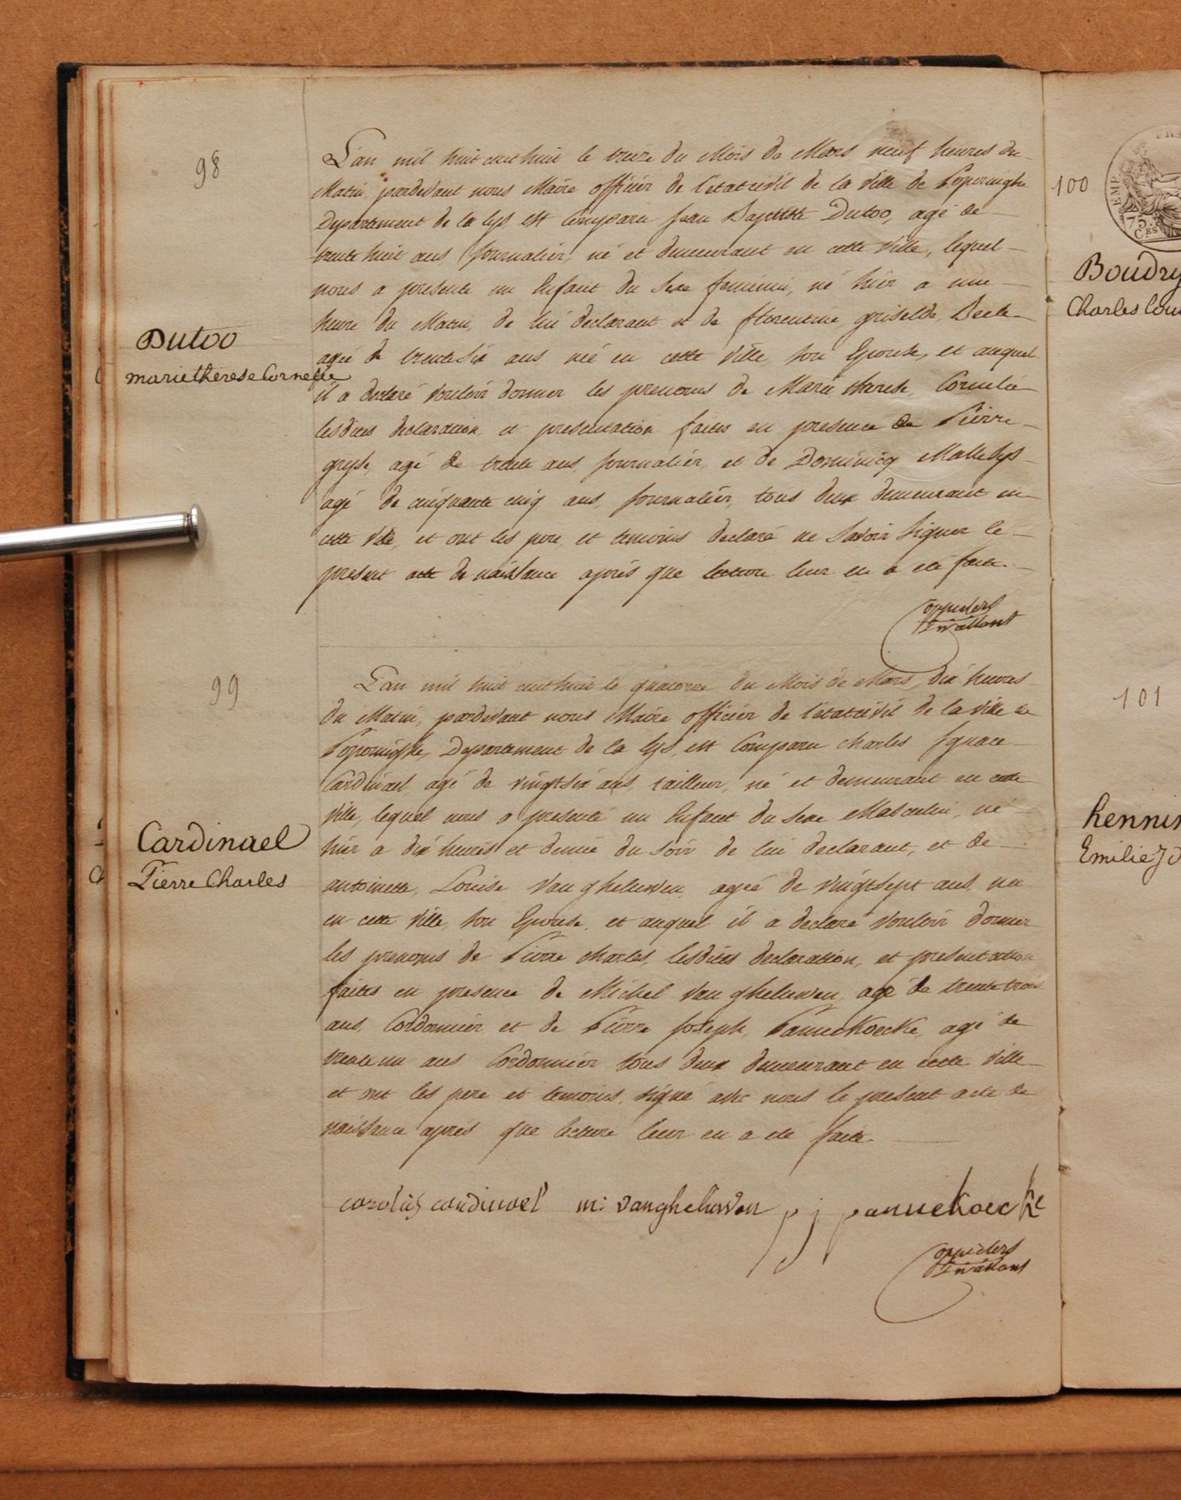 98
L'an mil huit cent huit le treize du Mois de Mars neuf heures du
Matin, pardevant nous Maire officier de l'etat civil de la Ville de Poperinghe
Departement de la Lys est comparu Jean Baptiste Dutoo, agé de
trente huit ans Journalier, né et demeurant en cette Ville, lequel
nous a presenté un Enfant du Sexe femenin, né hier a une
heure du Matin, de lui declarant et de florentine griselde
agée de trente six ans née en cette Ville, son Epouse, et auquel
il a declaré vouloir donner les prenoms de Marie therese, Cornelie
lesdites declaration et presentation faites en presence de Pierre
gryse, agé de trente ans, Journalier, et de Dominicq
agé de cinquante cinq ans, Journalier, tous deux demeurant en
cette Ville, et ont les pere et temoins declaré ne savoir signer le
present acte de naissance après que lecture leur en a eté faite.
Dutoo
marie therese Cornelie
99
L'an mil huit cent huit le quatorze du Mois de Mars, dix heures
du Matin, pardevant nous Maire officier de l'etat civil de la Ville de
Poperinghe, Departement de la Lys est Comparu Charles Ignace
Cardinael agé de vingt six ans, tailleur, né et demeurant en cette
Ville, lequel nous a presenté un Enfant du Sexe Masculin, né
hier a dix heures et demie du soir de lui declarant, et de
antoinette, Louise Vangheluwen, agée de vingt sept ans, née
en cette Ville, son Epouse, et auquel il a declaré vouloir donner
les prenoms de Pierre Charles, lesdites declaration, et presentation
faites en presence de Michel Vangheluwen, agé de trente trois
ans, Cordonnier et de Pierre Joseph, Pannekoecke, agé de
trente un ans Cordonnier tous deux demeurant en cette Ville
et ont les pere et temoins, signé avec nous le present acte de
naissance après que lecture leur en a eté faite.
Cardinael
Pierre Charles
carolus cardinael m: vangheluwen p j pannekoecke
100
Boudry
Charles Lou
101
hennin
Emilie Jo